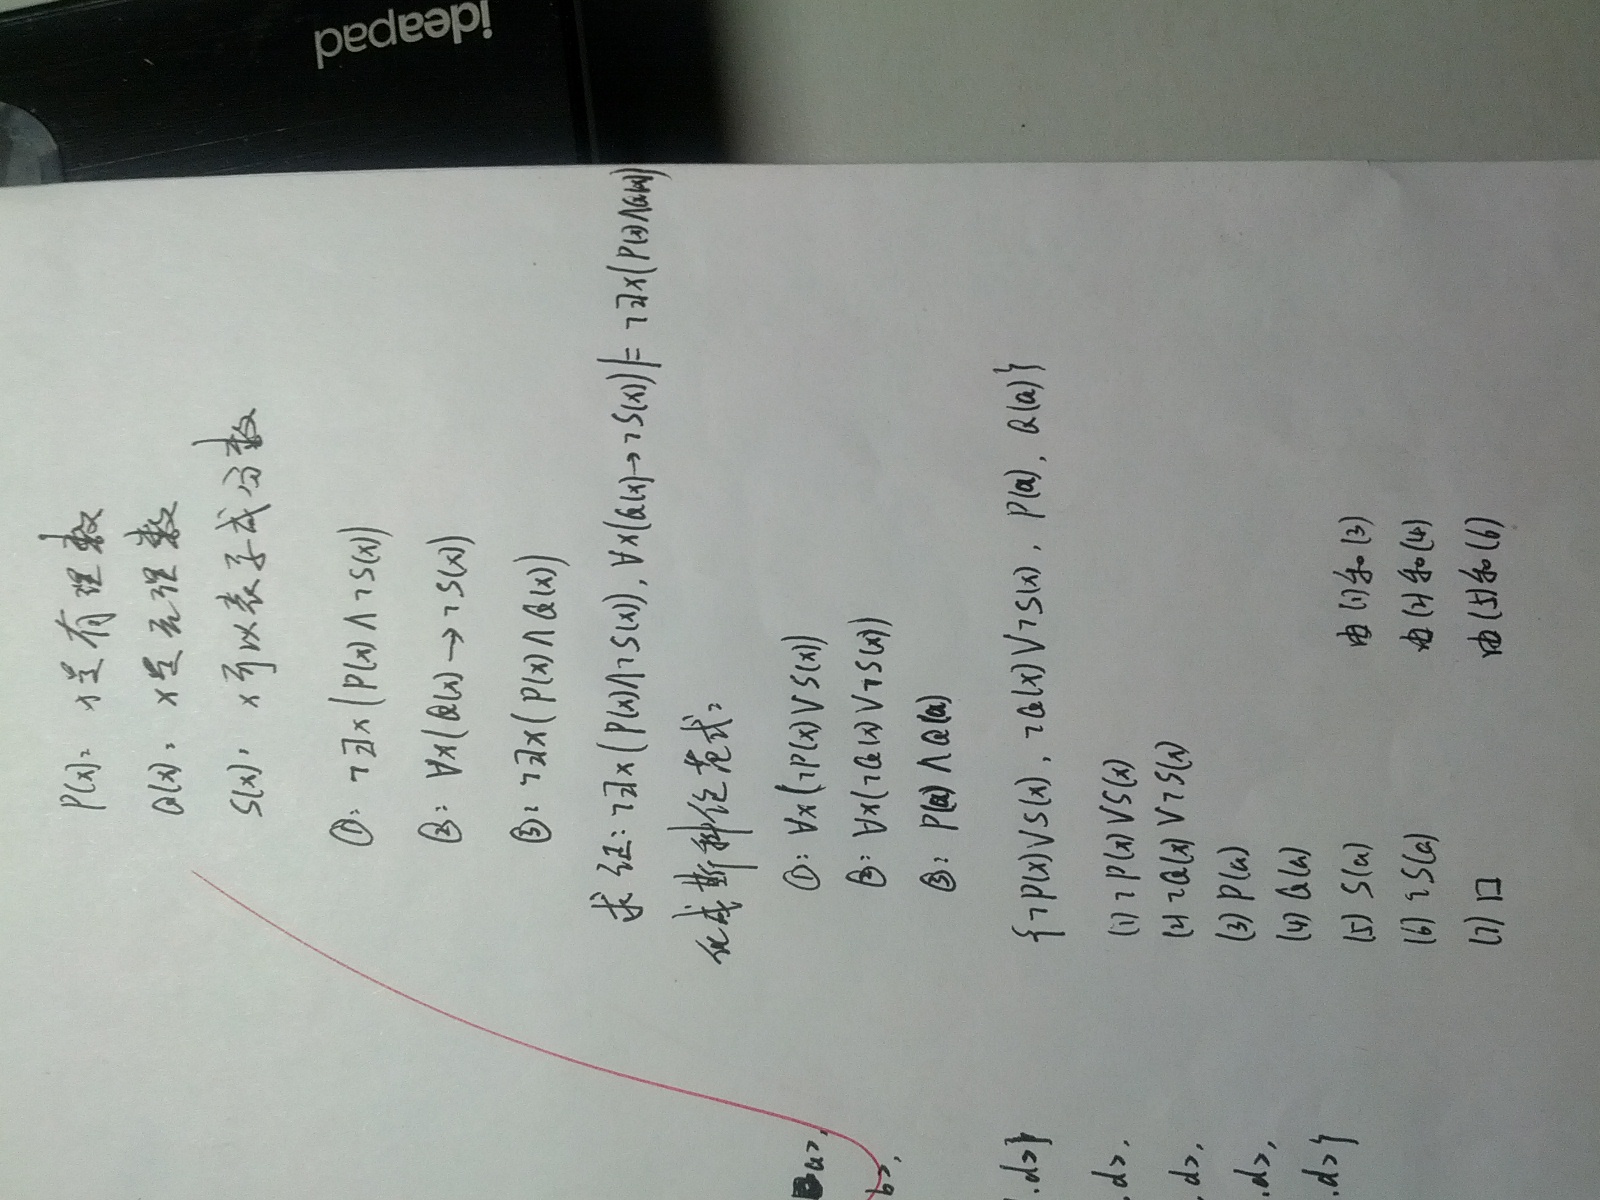 P(x): x是有理数
Q(x): x是无理数
S(x): x可以表示成分数
①: ¬∃x(P(x)∧¬S(x))
②: ∀x(Q(x)→¬S(x))
③: ¬∃x(P(x)∧Q(x))
求证: ¬∃x(P(x)∧¬S(x)), ∀x(Q(x)→¬S(x)) ⊨ ¬∃x(P(x)∧Q(x))
化成斯科伦范式:
①: ∀x(¬P(x)∨S(x))
②: ∀x(¬Q(x)∨¬S(x))
③: P(a)∧Q(a)
{¬P(x)∨S(x), ¬Q(x)∨¬S(x), P(a), Q(a)}
(1) ¬P(x)∨S(x)
(2) ¬Q(x)∨¬S(x)
(3) P(a)
(4) Q(a)
(5) S(a) 由(1)和(3)
(6) ¬S(a) 由(2)和(4)
(7) □ 由(5)和(6)
a>,
b>,
.d>}
.d>,
.d>,
.d>,
.d>}
ideapad